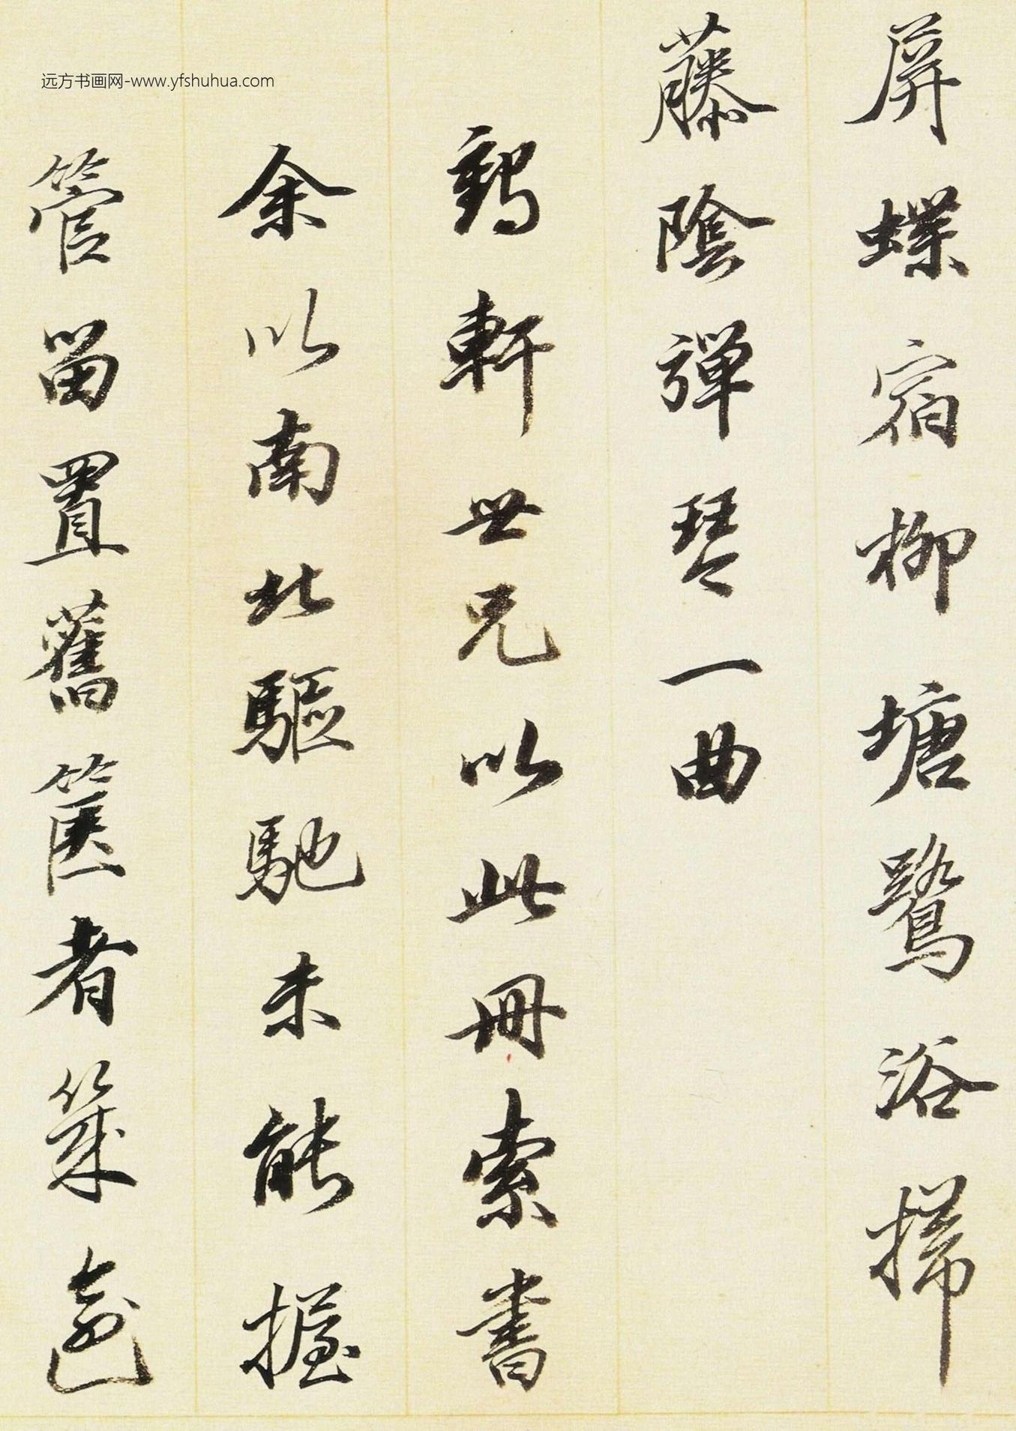 远方书画网-www.yfshuhua.com
屏蝶宿柳塘鷺浴掃
藤陰彈琴一曲
鶴軒世兄以此冊索書
余以南北驅馳未能握
管留置舊篋者幾